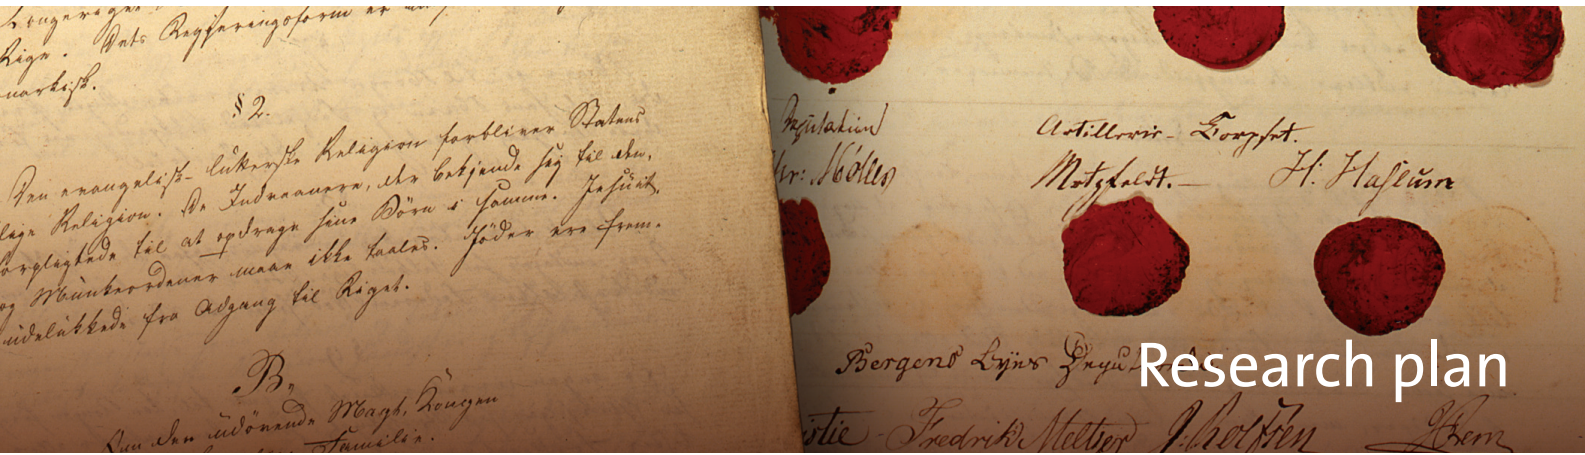 Rige. Dets Regjeringsform er
narkisk.
§ 2.
Den evangelisk-lutherske Religion forbliver Statens
lige Religion. De Indvaanere, der bekjende sig til den,
orpligtede til at opdrage sine Börn i samme. Jesuit,
og Munkeordener maae ikke taales. Jöder ere frem-
udelukkede fra Adgang til Riget.
B.
Om den udövende Magt, Kongen
Familie.
Artillerie-Corpset.
Motzfeldt. — H: Haslum
Bergens Byes
stie Fredrik Meltzer J: Rolfsen
Research plan